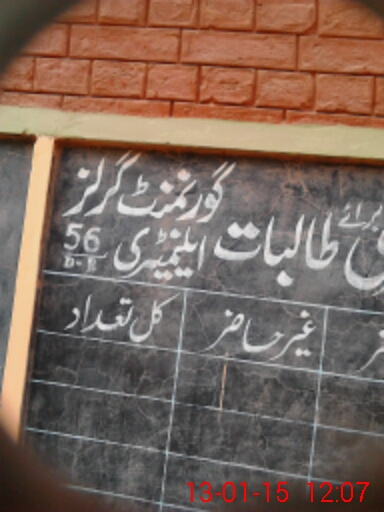 برائے طالبات گورنمنٹ گرلز
ایلیمنٹری 56
D.B
غیر حاضر کل تعداد
13-01-15 12:07